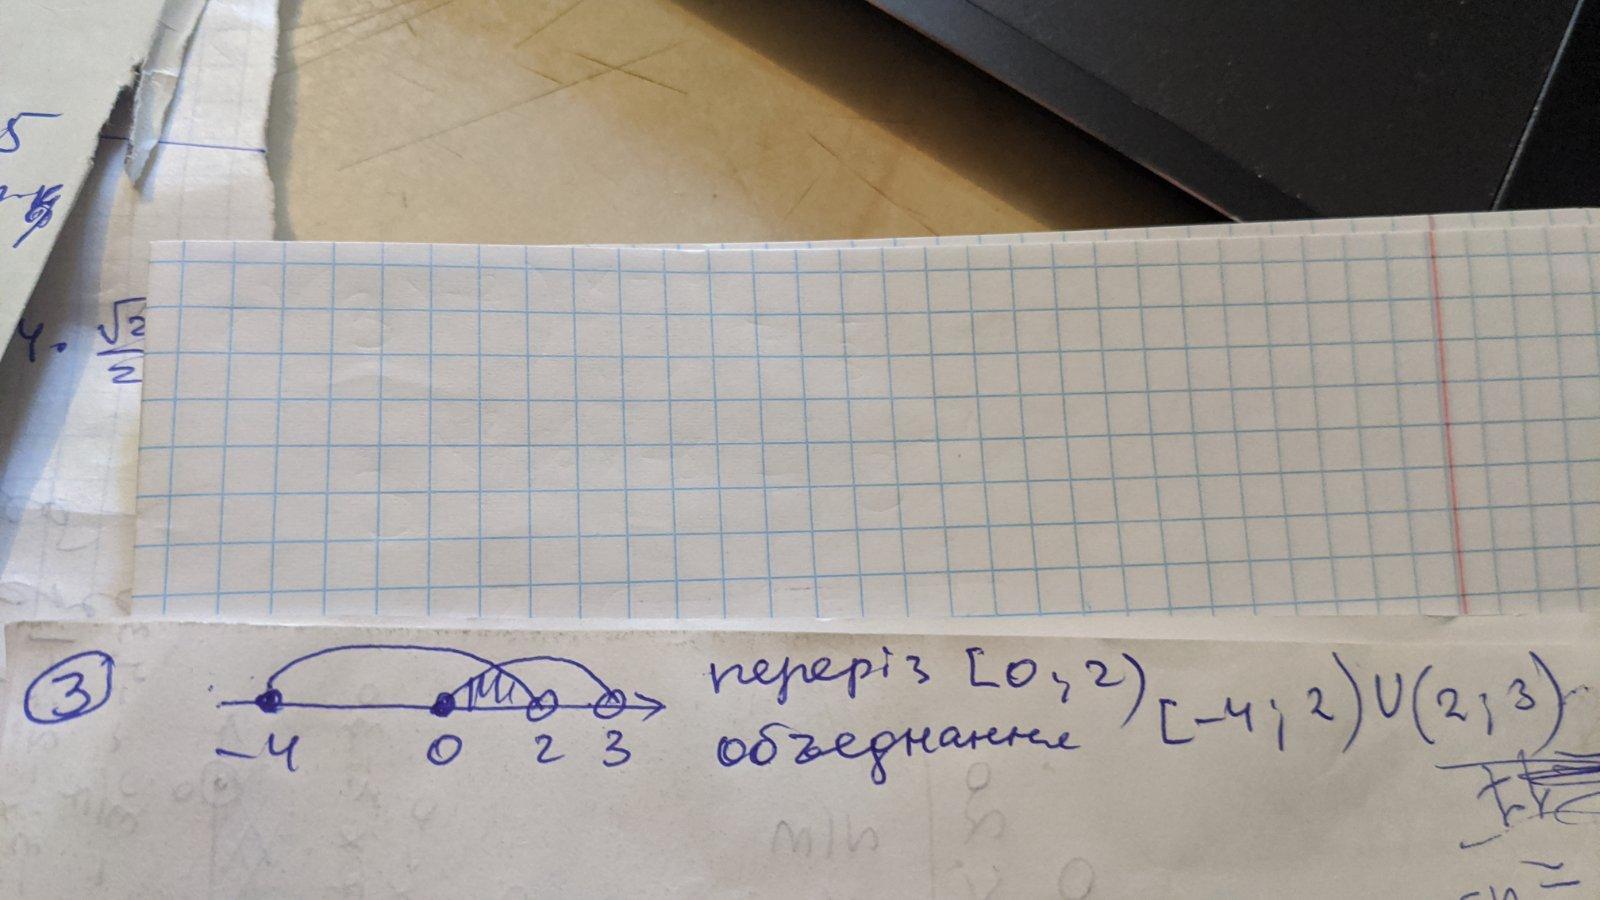 5
4. √2/2
③ переріз [0; 2)
-4 0 2 3 объеднання [-4; 2) U (2; 3)